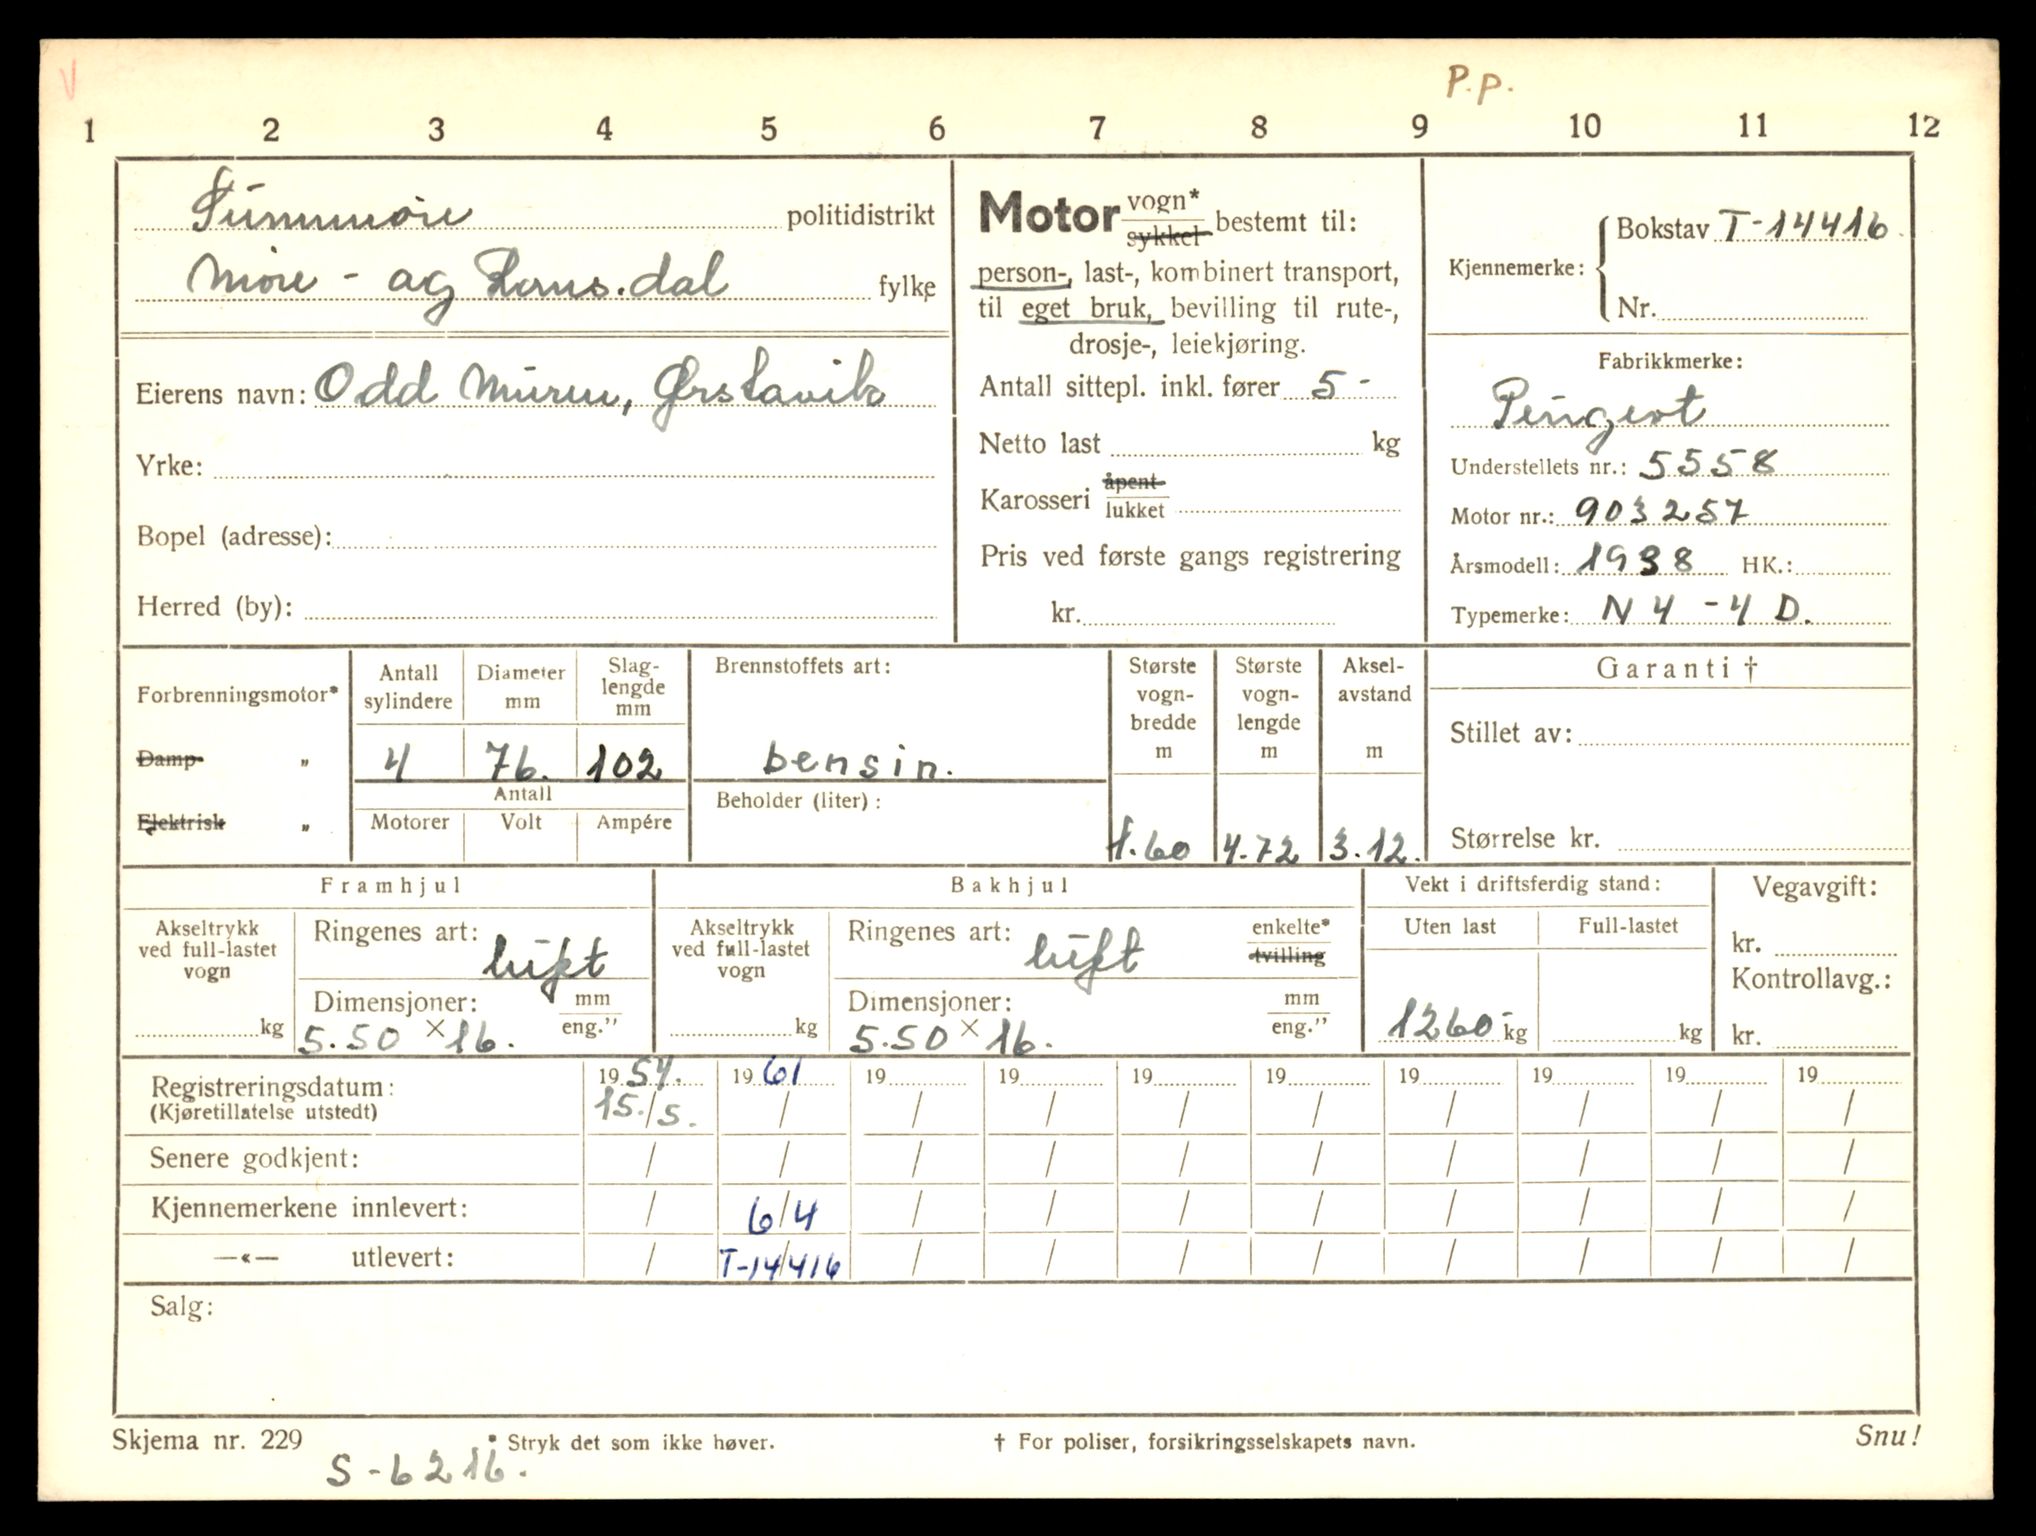 V
P.p.
1 2 3 4 5 6 7 8 9 10 11 12
Sunnmøre politidistrikt
Møre - og Roms.dal fylke
Eierens navn: Odd Muren, Ørstavik
Yrke:
Bopel (adresse):
Herred (by):
Motor vogn* / sykkel bestemt til:
person-, last-, kombinert transport,
til eget bruk, bevilling til rute-,
drosje-, leiekjøring.
Antall sittepl. inkl. fører 5 -
Netto last kg
Karosseri åpent / lukket
Pris ved første gangs registrering
kr.
Kjennemerke: Bokstav T-14416
Nr.
Fabrikkmerke:
Peugeot
Understellets nr.: 5558
Motor nr.: 903257
Årsmodell: 1938 HK.:
Typemerke: N 4 - 4 D.
Forbrenningsmotor*
Damp- „
Elektrisk „
Antall sylindere
Diameter mm
Slag-lengde mm
4 76. 102
Antall
Motorer Volt Ampére
Brennstoffets art:
bensin.
Beholder (liter):
Største vogn-bredde m
1.60
Største vogn-lengde m
4.72
Aksel-avstand m
3.12.
Garanti †
Stillet av:
Størrelse kr.
Framhjul
Akseltrykk ved full-lastet vogn
kg
Ringenes art: luft
Dimensjoner: mm / eng.”
5.50 × 16.
Bakhjul
Akseltrykk ved full-lastet vogn
kg
Ringenes art: luft enkelte* / tvilling
Dimensjoner: mm / eng.”
5.50 × 16.
Vekt i driftsferdig stand:
Uten last Full-lastet
1260- kg kg
Vegavgift:
kr.
Kontrollavg.:
kr.
Registreringsdatum: 1957. 1961 19 19 19 19 19 19 19 19
(Kjøretillatelse utstedt) 15./5. / / / / / / / / /
Senere godkjent: / / / / / / / / / /
Kjennemerkene innlevert: / 6/4 / / / / / / / /
—«— utlevert: / T-14416 / / / / / / / /
Salg:
Skjema nr. 229 * Stryk det som ikke høver. † For poliser, forsikringsselskapets navn. Snu!
S-6216.